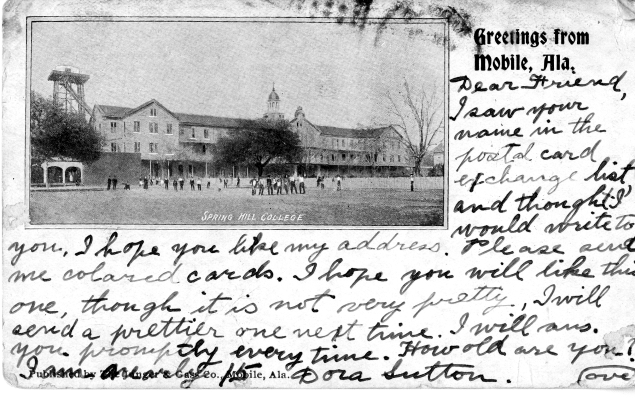 Greetings from
Mobile, Ala.
Dear Friend,
I saw your
name in the
postal card
exchange list
and thought I
would write to
SPRING HILL COLLEGE
you, I hope you like my address. Please send
me colared cards. I hope you will like this
one, though it is not very pretty, I will
send a prettier one next time. I will ans.
you promptly every time. How old are you?
I am only 15 Dora Sutton. (over
Published by & Gass Co., Mobile, Ala.